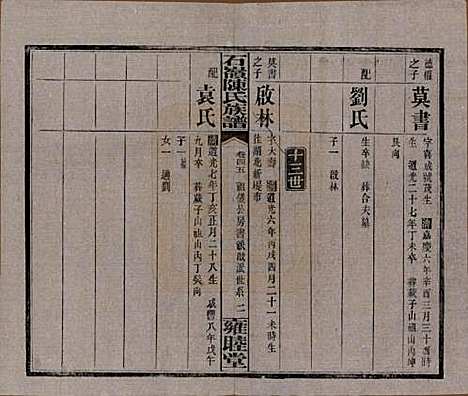 德權之子
莫書
字襄成號茂生 清嘉慶六年辛酉三月三十酉時
生 道光二十七年丁未卒 葬蕺子山祖山內坤
艮向
配
劉氏
生卒缺 葬合夫墓
子一 啟林
十三世
莫書之子
啟林
字大壽 清道光六年丙戌四月二十一未時生
住湖北新堤市
石嶺陳氏族譜
卷四五
雍睦堂
配
袁氏
清道光七年丁亥正月二十八生 咸豐八年戊午
九月卒 葬蕺子山祖山內丁癸向
子一
女一 適劉